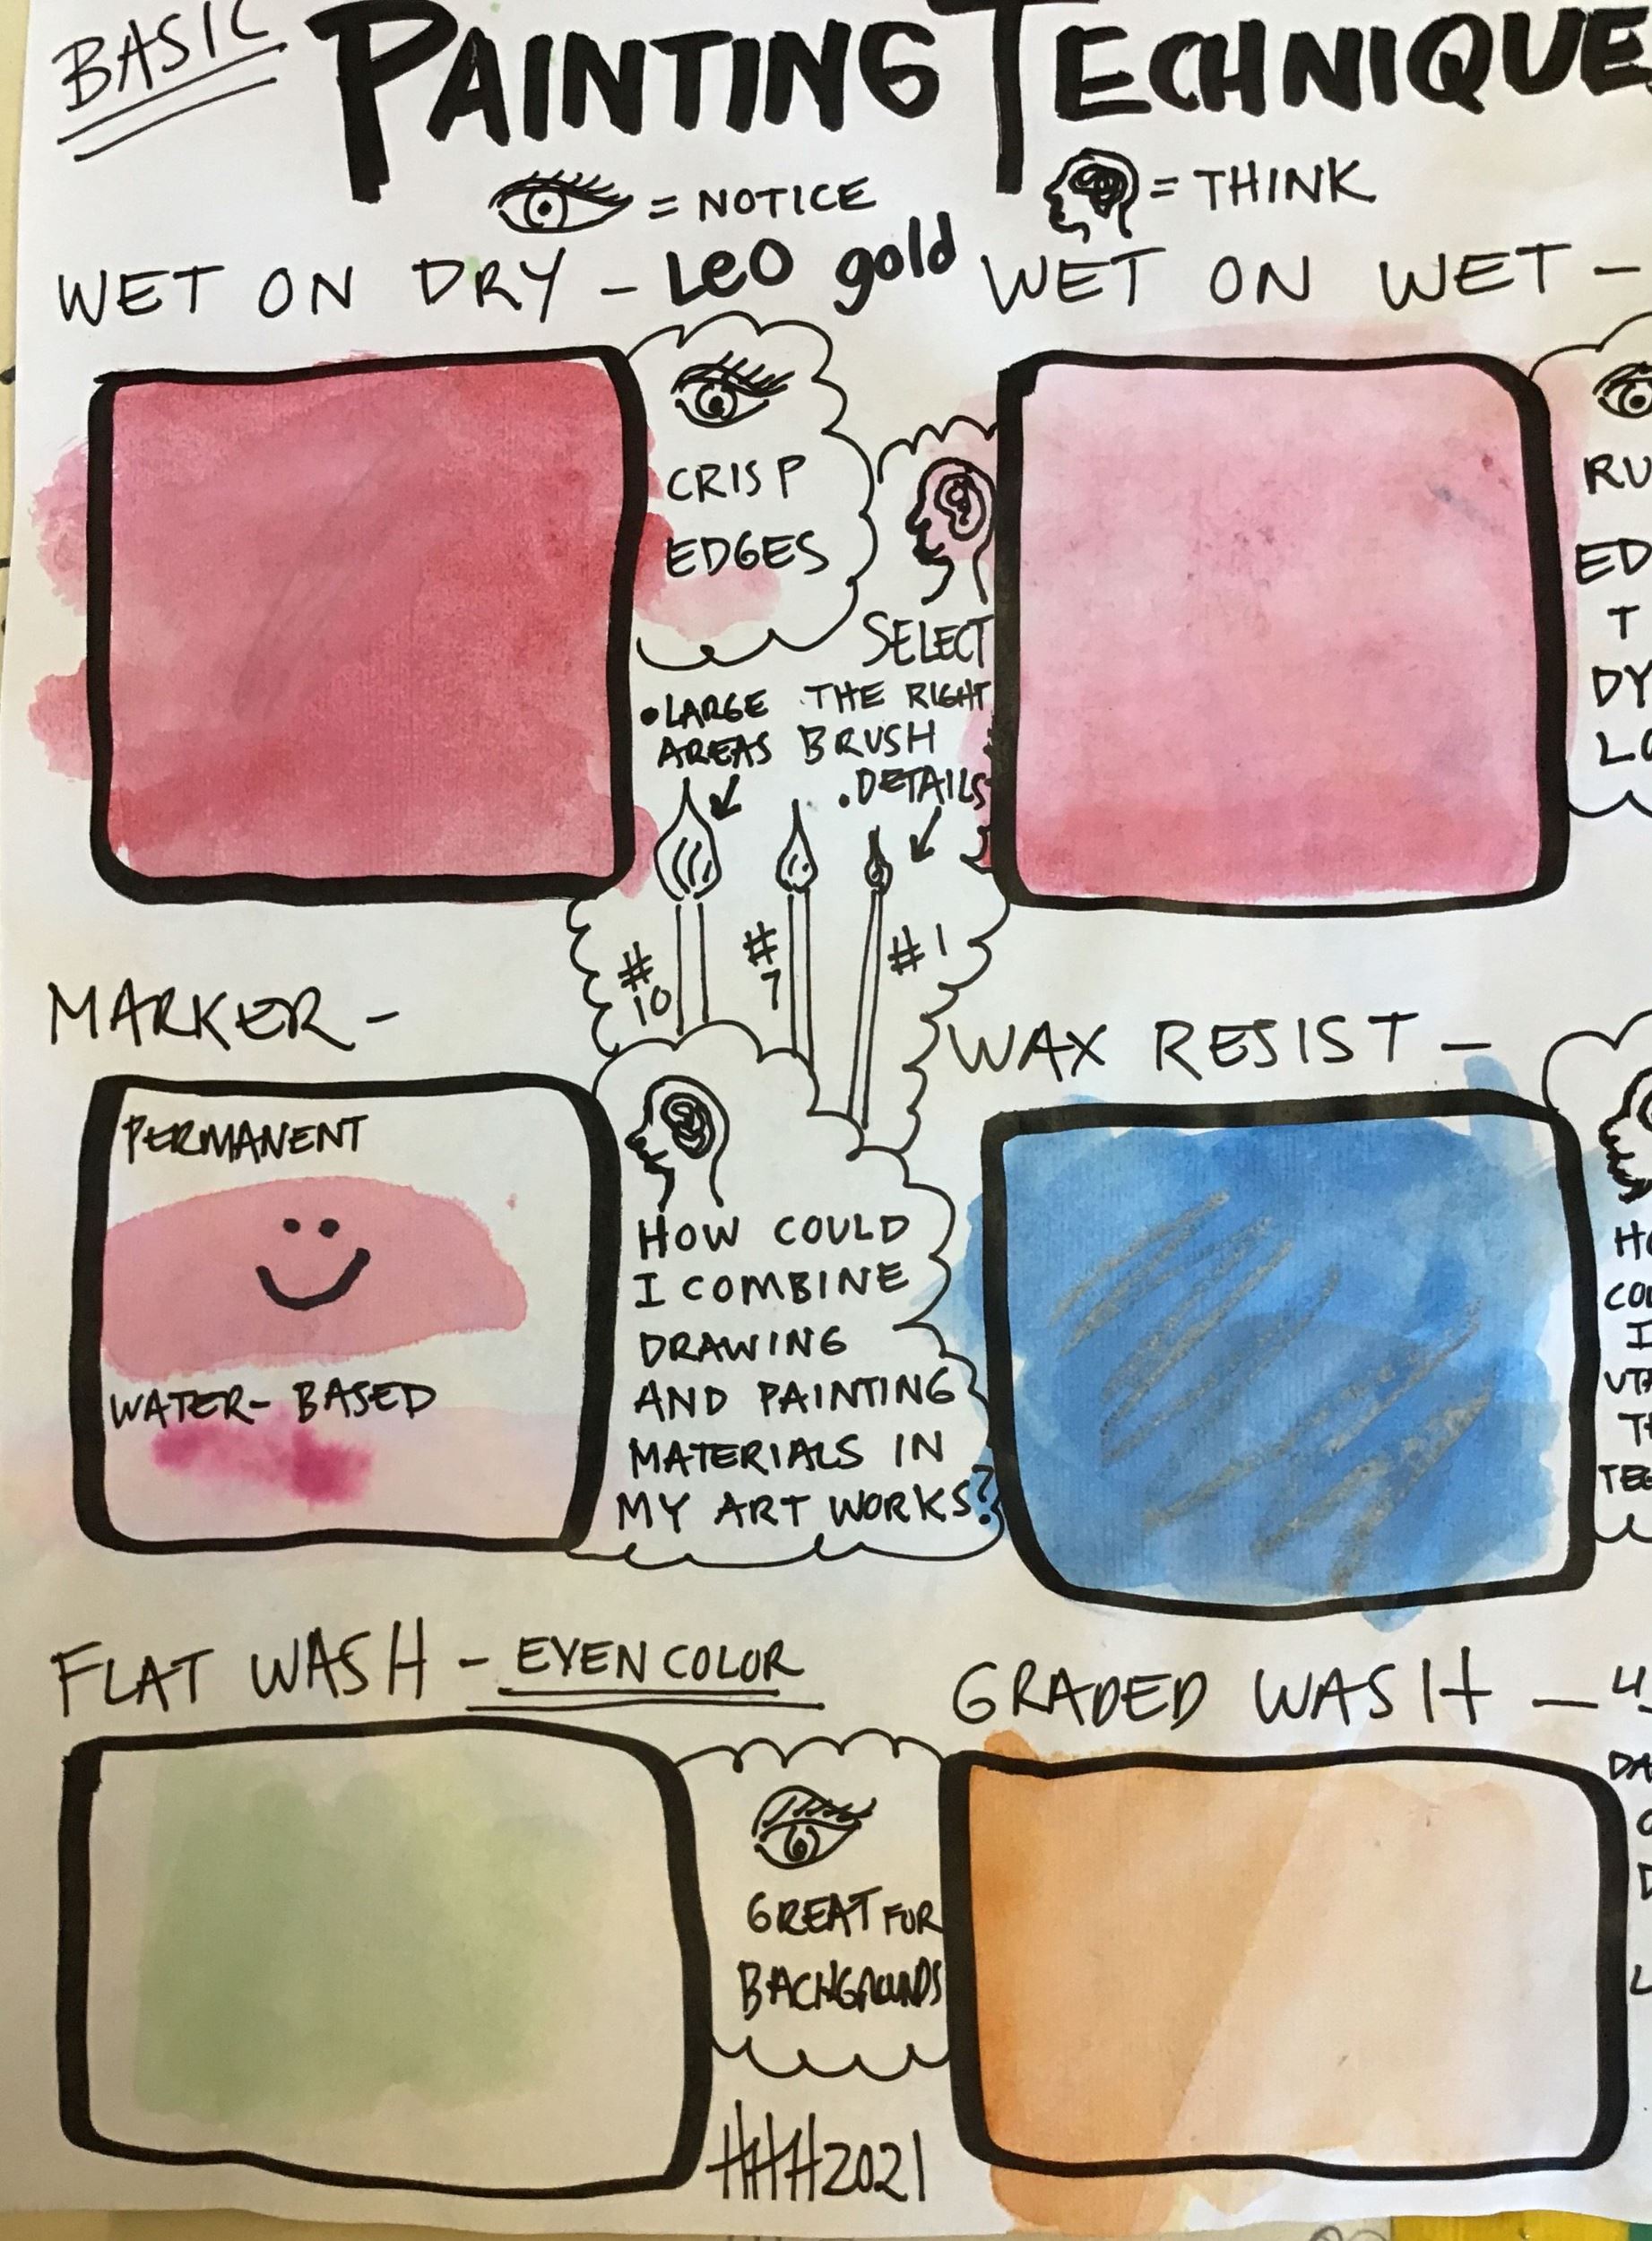 BASIC PAINTING TECHNIQUE
= NOTICE
= THINK
WET ON DRY - Leo gold
CRISP
EDGES
WET ON WET -
RU
ED
T
DY
LO
SELECT
THE RIGHT
BRUSH
• LARGE
AREAS
• DETAILS
#10
#7
#1
MARKER -
PERMANENT
WATER-BASED
HOW COULD
I COMBINE
DRAWING
AND PAINTING
MATERIALS IN
MY ART WORKS?
WAX RESIST -
HO
COU
I
TEC
FLAT WASH - EVEN COLOR
GREAT FOR
BACHGROUNDS
GRADED WASH -
DA
L
HHH 2021